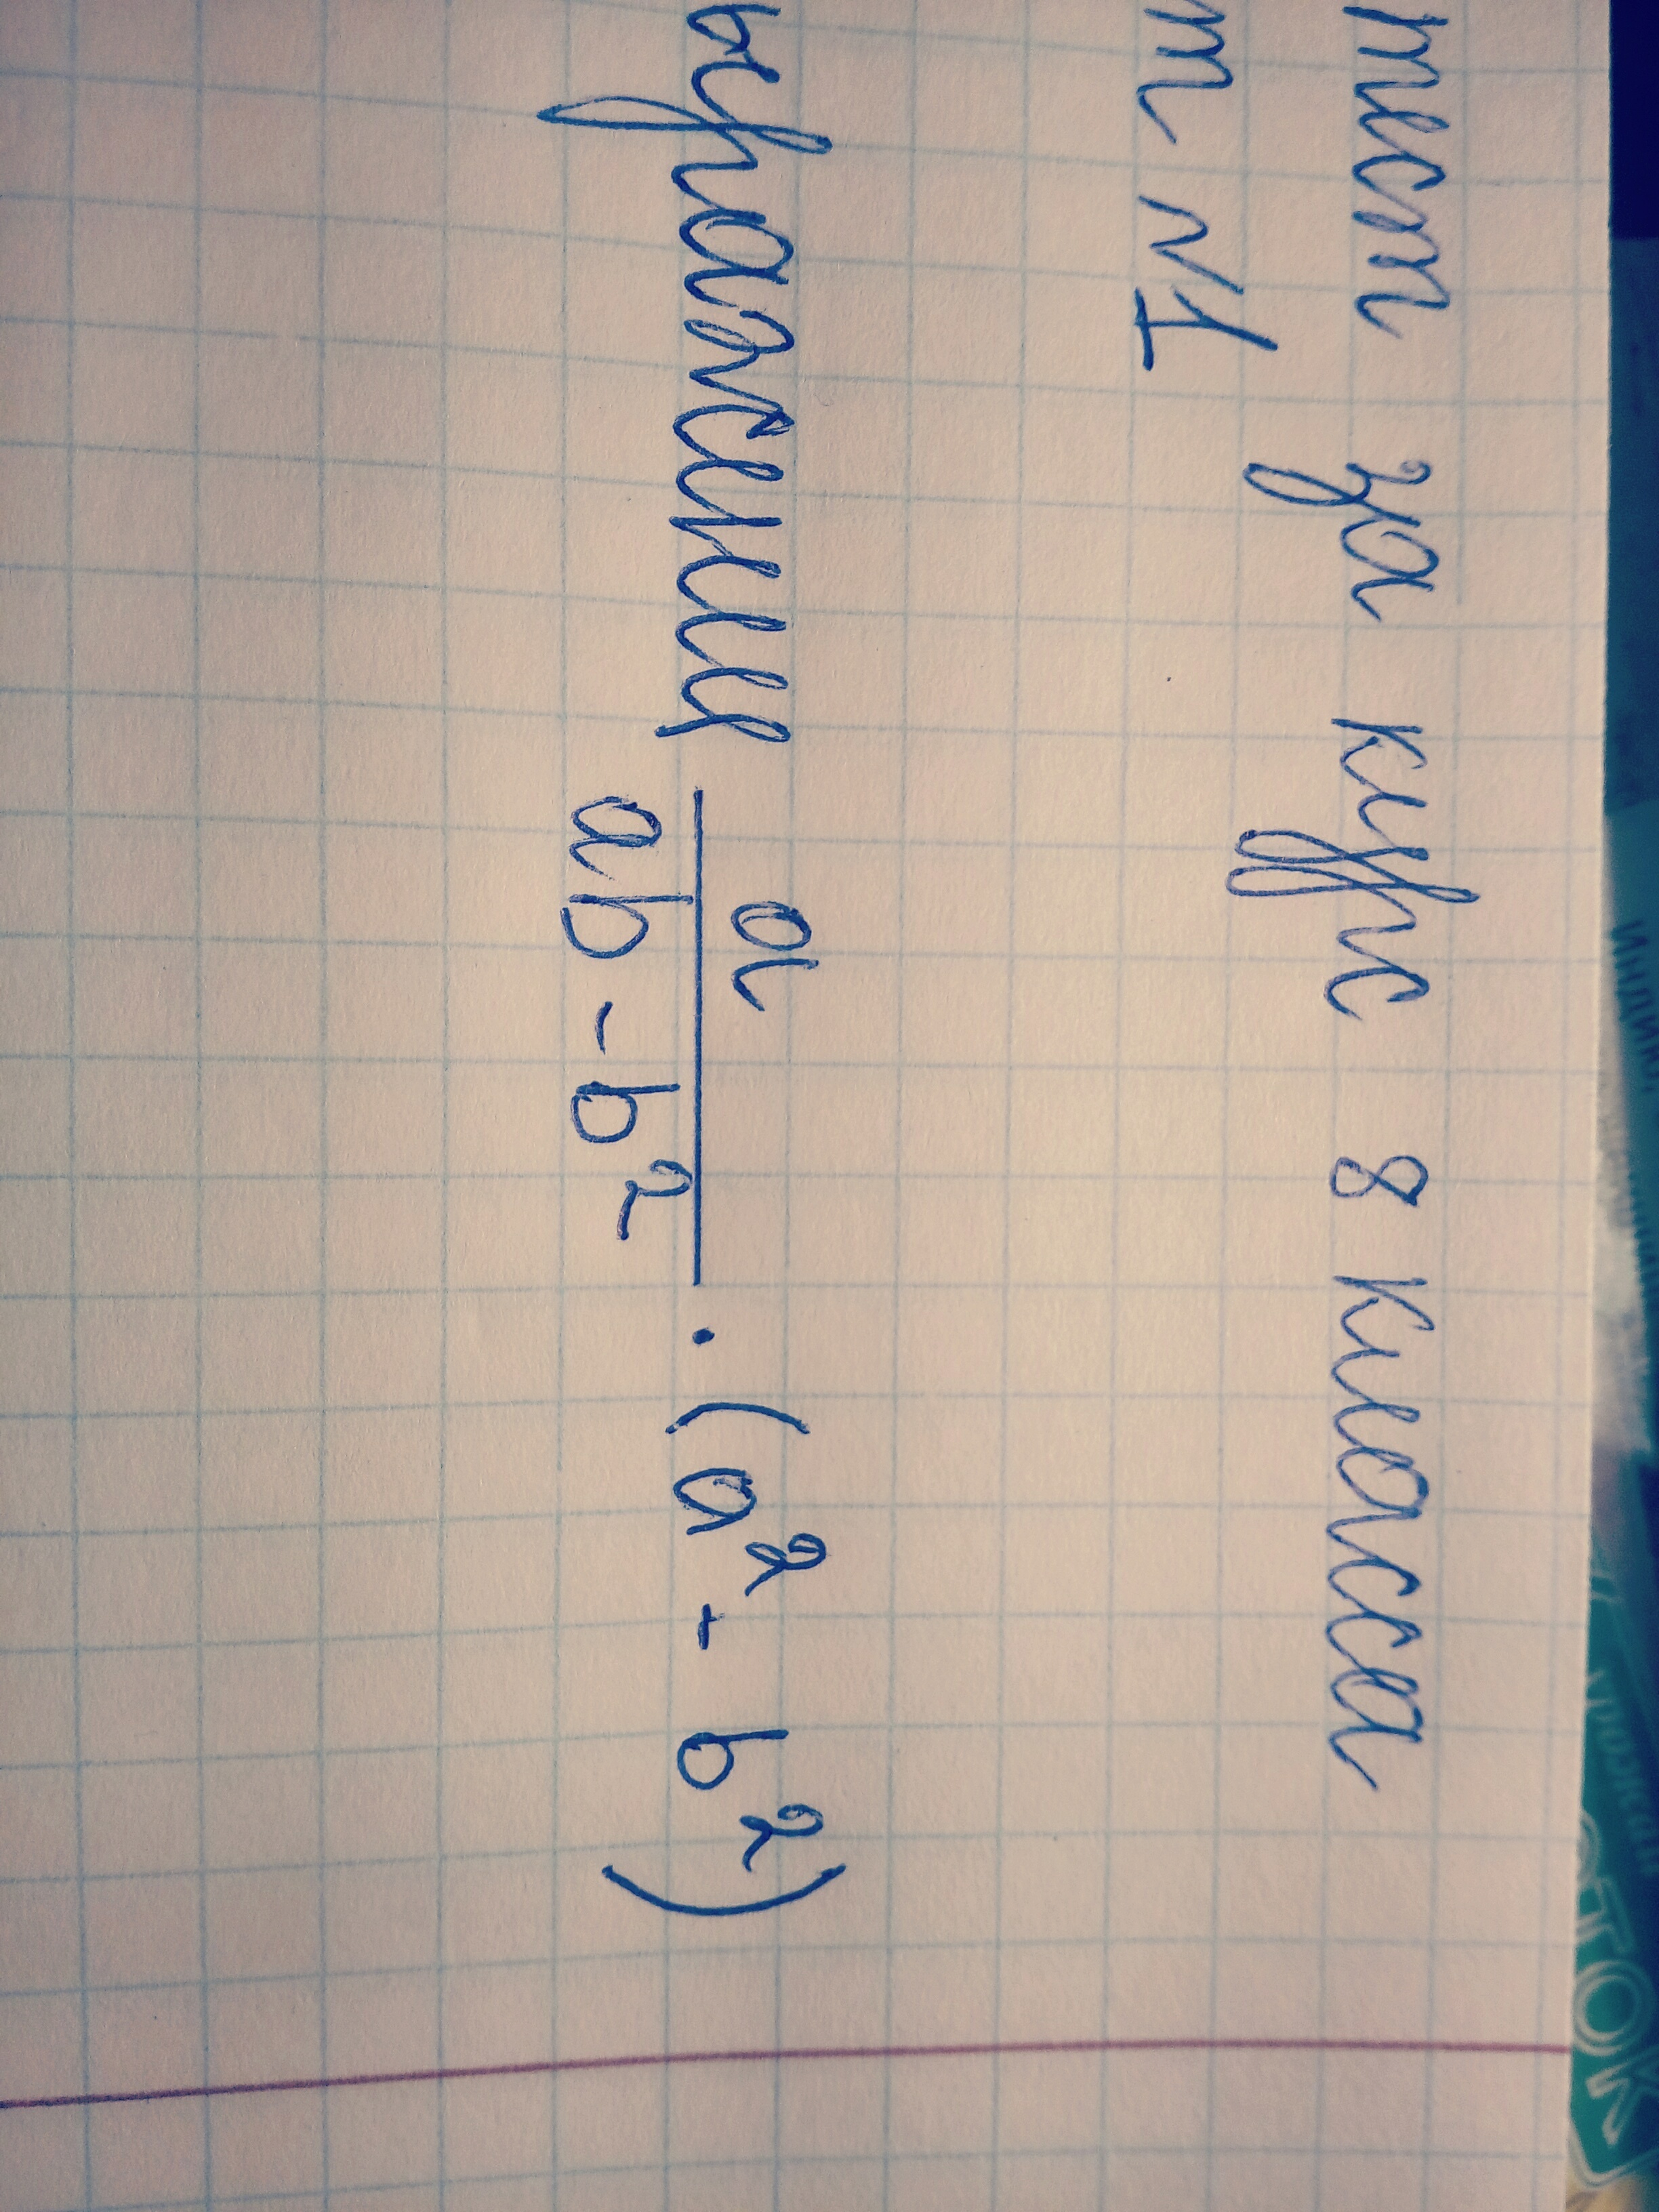 тест за курс 8 класса
т №1
выражение a
ab - b² · (a² - b²)